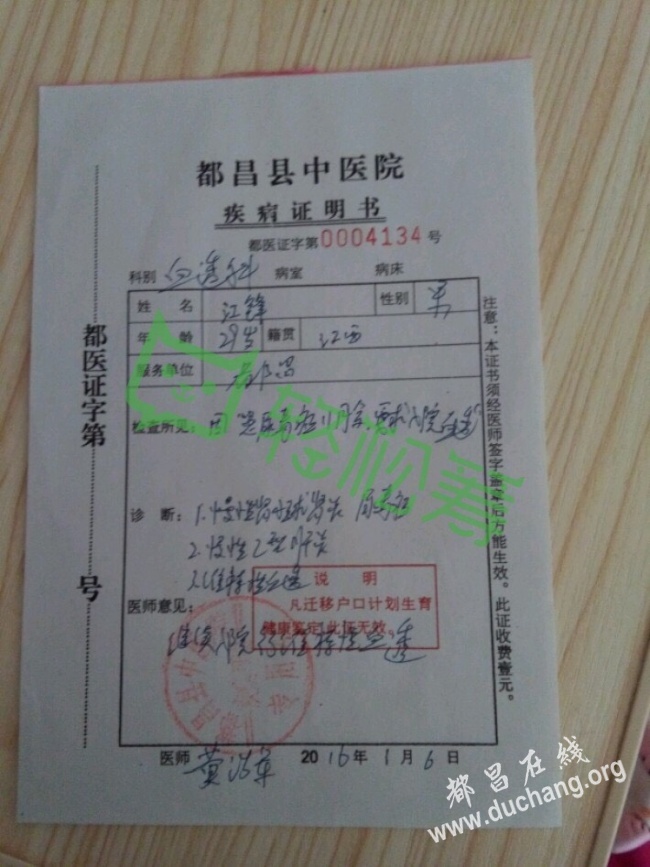 都昌县中医院
疾病证明书
都医证字第0004134号
科别 血透科 病室 病床
姓名 江锋 性别 男
年龄 29岁 籍贯 江西
服务单位 都昌
检查所见: 因
诊断: 1.慢性肾小球肾炎 尿毒症
2.慢性乙型肝炎
3.维持性血透
说明
凡迁移户口计划生育
健康鉴定此证无效
医师意见:
住院行维持性血透
医师 2016年1月6日
都医证字第 号
注意:本证书须经医师签字盖章后方能生效。此证收费壹元。
都昌县中医院
轻松筹
都昌在线
www.duchang.org